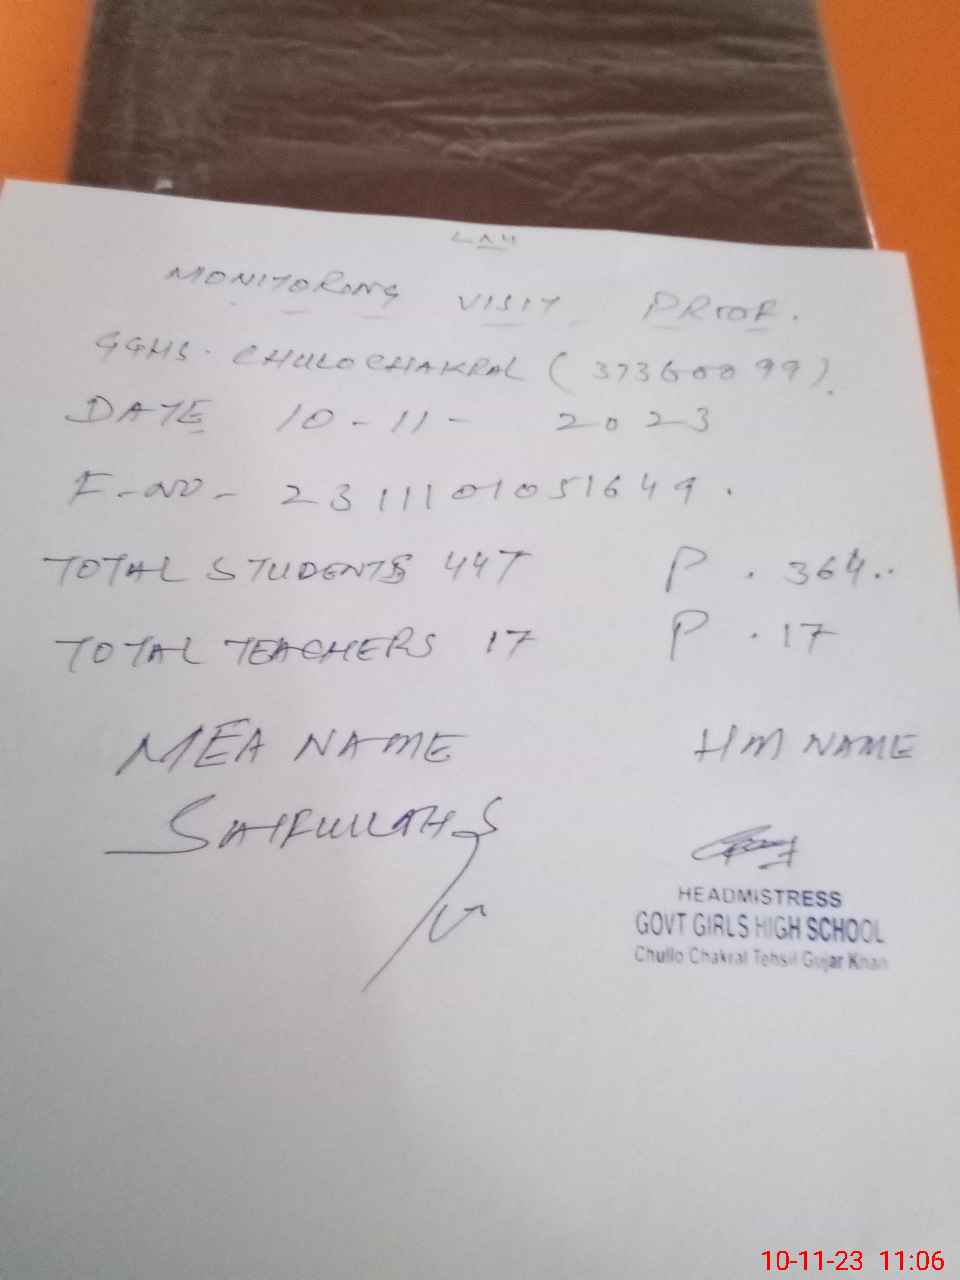 MONITORING VISIT PROOF.
GGHS. CHULOCHAKRAL (37360099).
DATE 10-11-2023
F-NO- 2311101051649.
TOTAL STUDENTS 447 P. 364..
TOTAL TEACHERS 17 P. 17
MEA NAME HM NAME
SAIFULLAH
HEADMISTRESS
GOVT GIRLS HIGH SCHOOL
Chullo Chakral Tehsil Gujar Khan
10-11-23 11:06